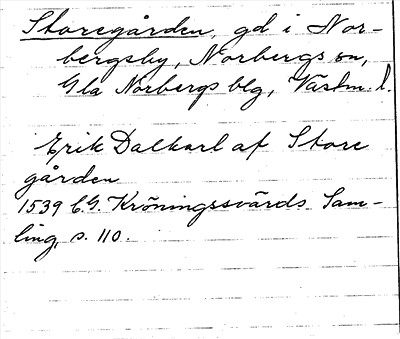 Storegården, gd i Nor-
bergsby, Norbergs sn,
Gla Norbergs blg, Västm. l.
Erik Dalkarl af Store
gården
1539 C.G. Kröningssvärds Sam-
ling, s. 110.